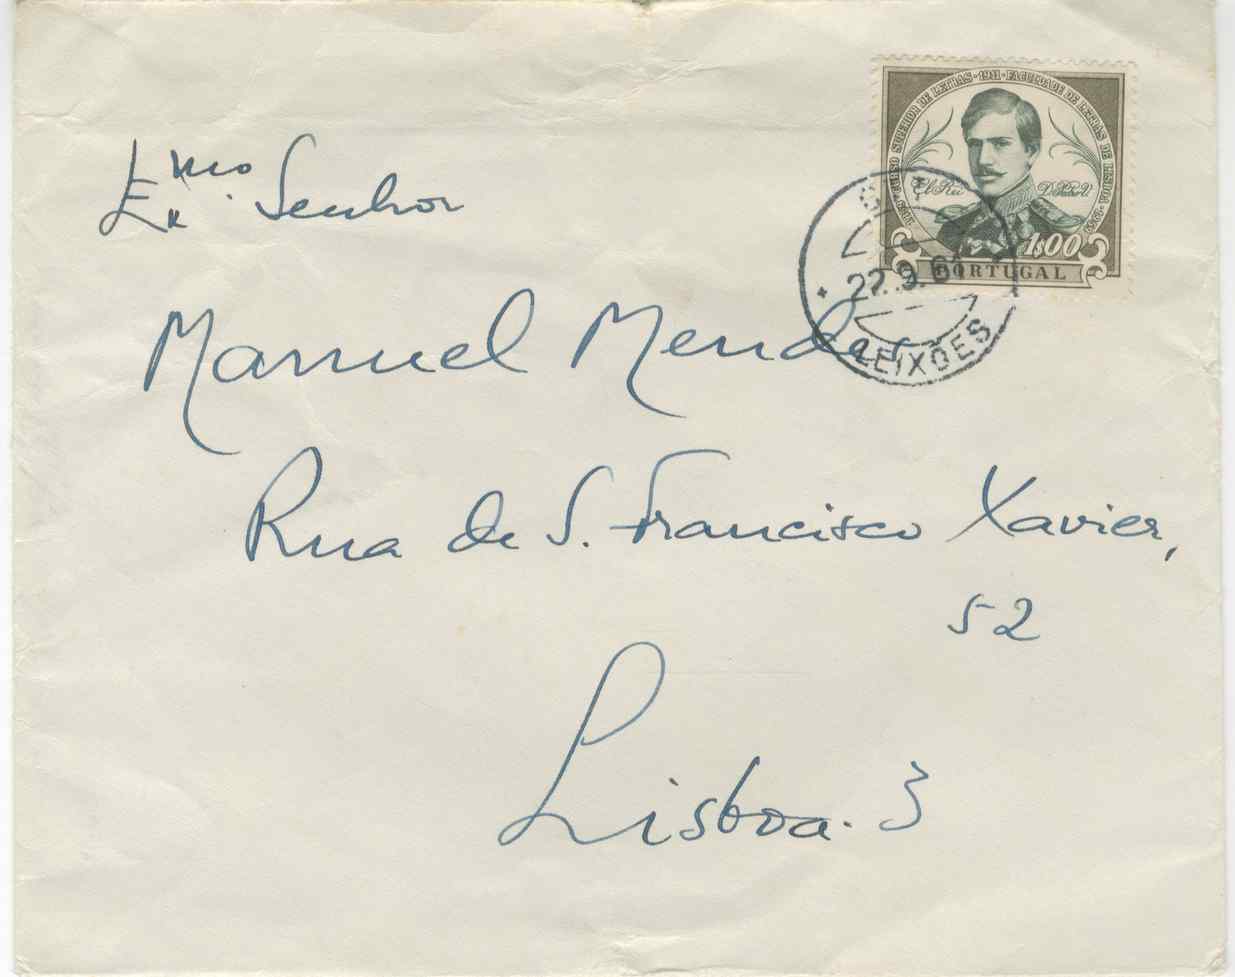 Exmo. Senhor
Manuel Mendes
Rua de S. Francisco Xavier,
52
Lisboa. 3
CURSO SUPERIOR DE LETRAS · 1911 · FACULDADE DE LETRAS DE LISBOA
El Rei D. P. V
1$00
PORTUGAL
22.9.61
LEIXÕES